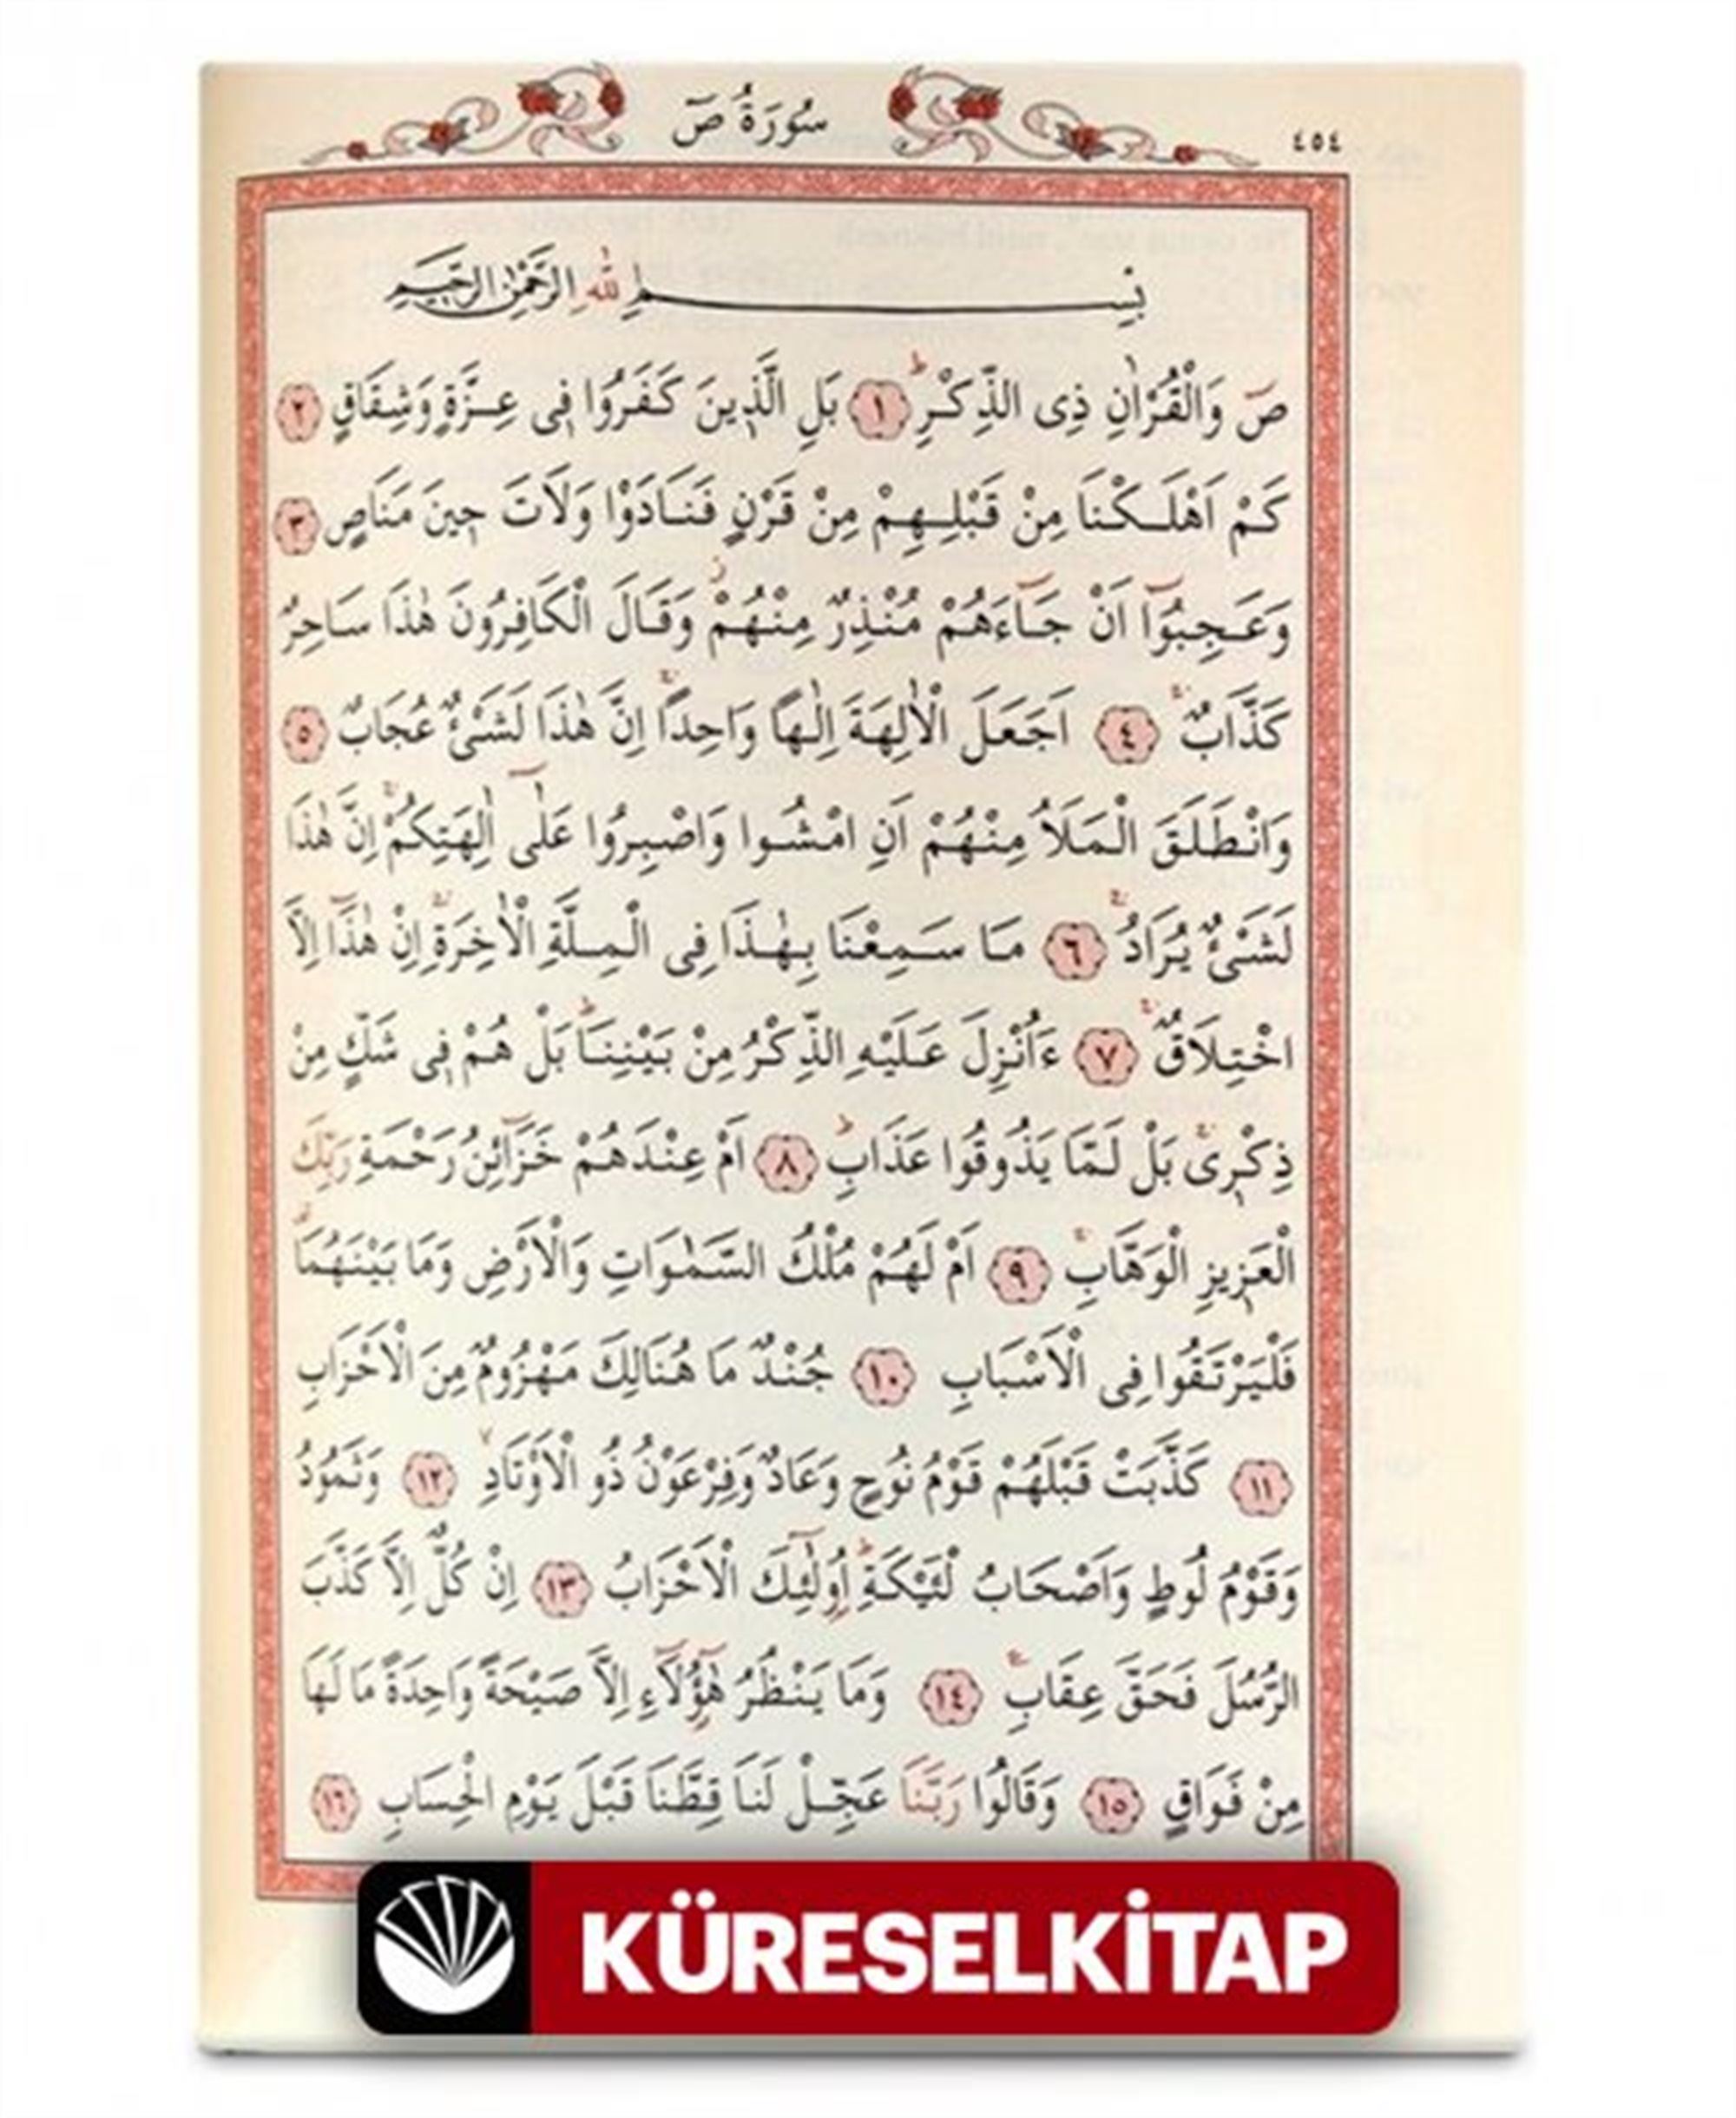 ٤٥٤
سُورَةُ صٓ
بِسْمِ اللّٰهِ الرَّحْمٰنِ الرَّحِيمِ
صٓ وَالْقُرْاٰنِ ذِى الذِّكْرِۜ ﴿١﴾ بَلِ الَّذ۪ينَ كَفَرُوا ف۪ى عِزَّةٍ وَشِقَاقٍ ﴿٢﴾
كَمْ اَهْلَكْنَا مِنْ قَبْلِهِمْ مِنْ قَرْنٍ فَنَادَوْا وَلَاتَ ح۪ينَ مَنَاصٍ ﴿٣﴾
وَعَجِبُٓوا اَنْ جَٓاءَهُمْ مُنْذِرٌ مِنْهُمْۘ وَقَالَ الْكَافِرُونَ هٰذَا سَاحِرٌ
كَذَّابٌۚ ﴿٤﴾ اَجَعَلَ الْاٰلِهَةَ اِلٰهًا وَاحِدًاۚ اِنَّ هٰذَا لَشَىْءٌ عُجَابٌ ﴿٥﴾
وَانْطَلَقَ الْمَلَاُ مِنْهُمْ اَنِ امْشُوا وَاصْبِرُوا عَلٰٓى اٰلِهَتِكُمْۚ اِنَّ هٰذَا
لَشَىْءٌ يُرَادُۚ ﴿٦﴾ مَا سَمِعْنَا بِهٰذَا فِى الْمِلَّةِ الْاٰخِرَةِۚ اِنْ هٰذَٓا اِلَّا
اخْتِلَاقٌۚ ﴿٧﴾ ءَاُنْزِلَ عَلَيْهِ الذِّكْرُ مِنْ بَيْنِنَاۜ بَلْ هُمْ ف۪ى شَكٍّ مِنْ
ذِكْر۪ىۚ بَلْ لَمَّا يَذُوقُوا عَذَابِۜ ﴿٨﴾ اَمْ عِنْدَهُمْ خَزَٓائِنُ رَحْمَةِ رَبِّكَ
الْعَز۪يزِ الْوَهَّابِۚ ﴿٩﴾ اَمْ لَهُمْ مُلْكُ السَّمٰوَاتِ وَالْاَرْضِ وَمَا بَيْنَهُمَا۠
فَلْيَرْتَقُوا فِى الْاَسْبَابِ ﴿١٠﴾ جُنْدٌ مَا هُنَالِكَ مَهْزُومٌ مِنَ الْاَحْزَابِ
﴿١١﴾ كَذَّبَتْ قَبْلَهُمْ قَوْمُ نُوحٍ وَعَادٌ وَفِرْعَوْنُ ذُو الْاَوْتَادِۙ ﴿١٢﴾ وَثَمُودُ
وَقَوْمُ لُوطٍ وَاَصْحَابُ لْـَٔيْكَةِۜ اُو۬لٰٓئِكَ الْاَحْزَابُ ﴿١٣﴾ اِنْ كُلٌّ اِلَّا كَذَّبَ
الرُّسُلَ فَحَقَّ عِقَابِ۟ ﴿١٤﴾ وَمَا يَنْظُرُ هٰٓؤُ۬لَٓاءِ اِلَّا صَيْحَةً وَاحِدَةً مَا لَهَا
مِنْ فَوَاقٍ ﴿١٥﴾ وَقَالُوا رَبَّنَا عَجِّلْ لَنَا قِطَّنَا قَبْلَ يَوْمِ الْحِسَابِ ﴿١٦﴾
KÜRESELKİTAP